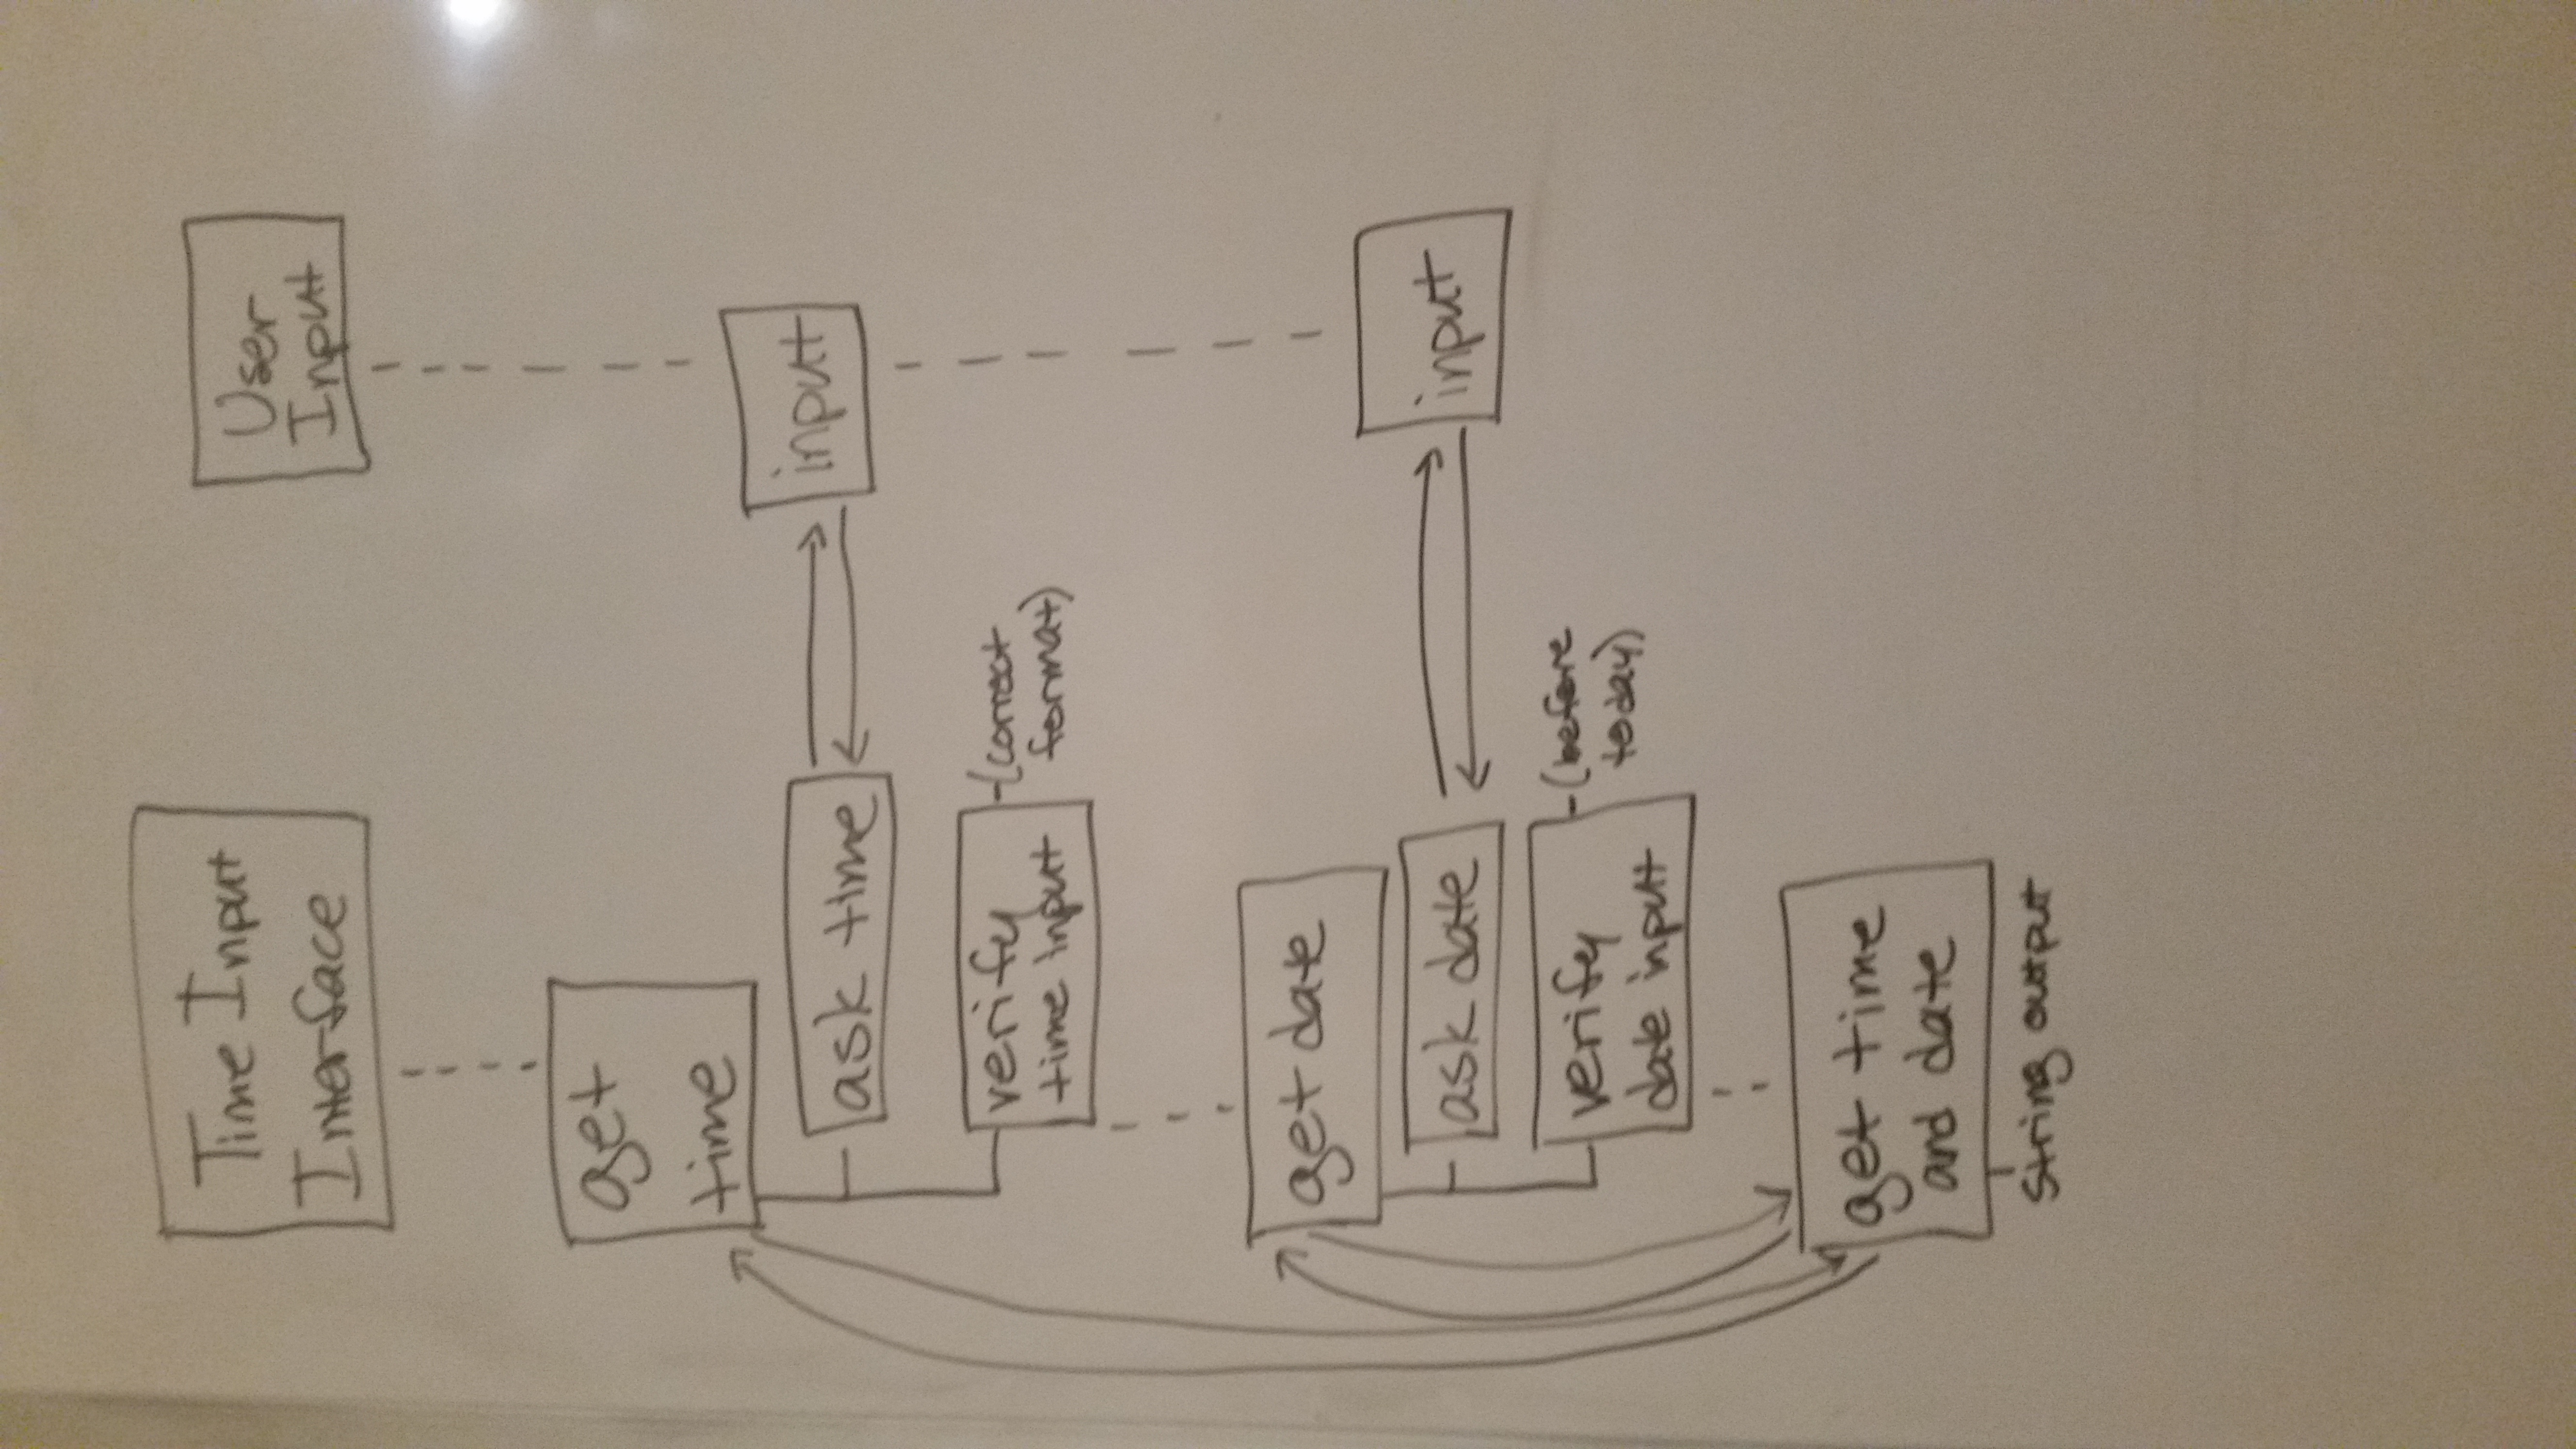 Time Input
Interface
User
Input
get
time
ask time
input
verify
time input
(correct
format)
get date
ask date
input
verify
date input
(before
today)
get time
and date
string output